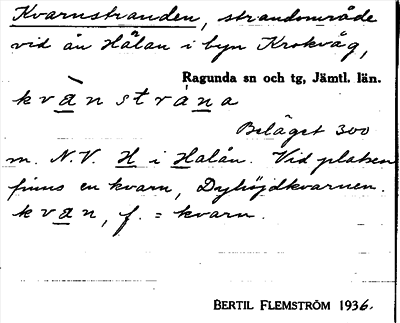 Kvarnstranden, strandområde
vid ån Hålan i byn Krokvåg,
Ragunda sn och tg, Jämtl. län.
kvànstrána
Beläget 300
m. N.V. H i Halån. Vid platsen
finns en kvarn, Dyhöjdkvarnen.
kvan, f. = kvarn.
BERTIL FLEMSTRÖM 1936.